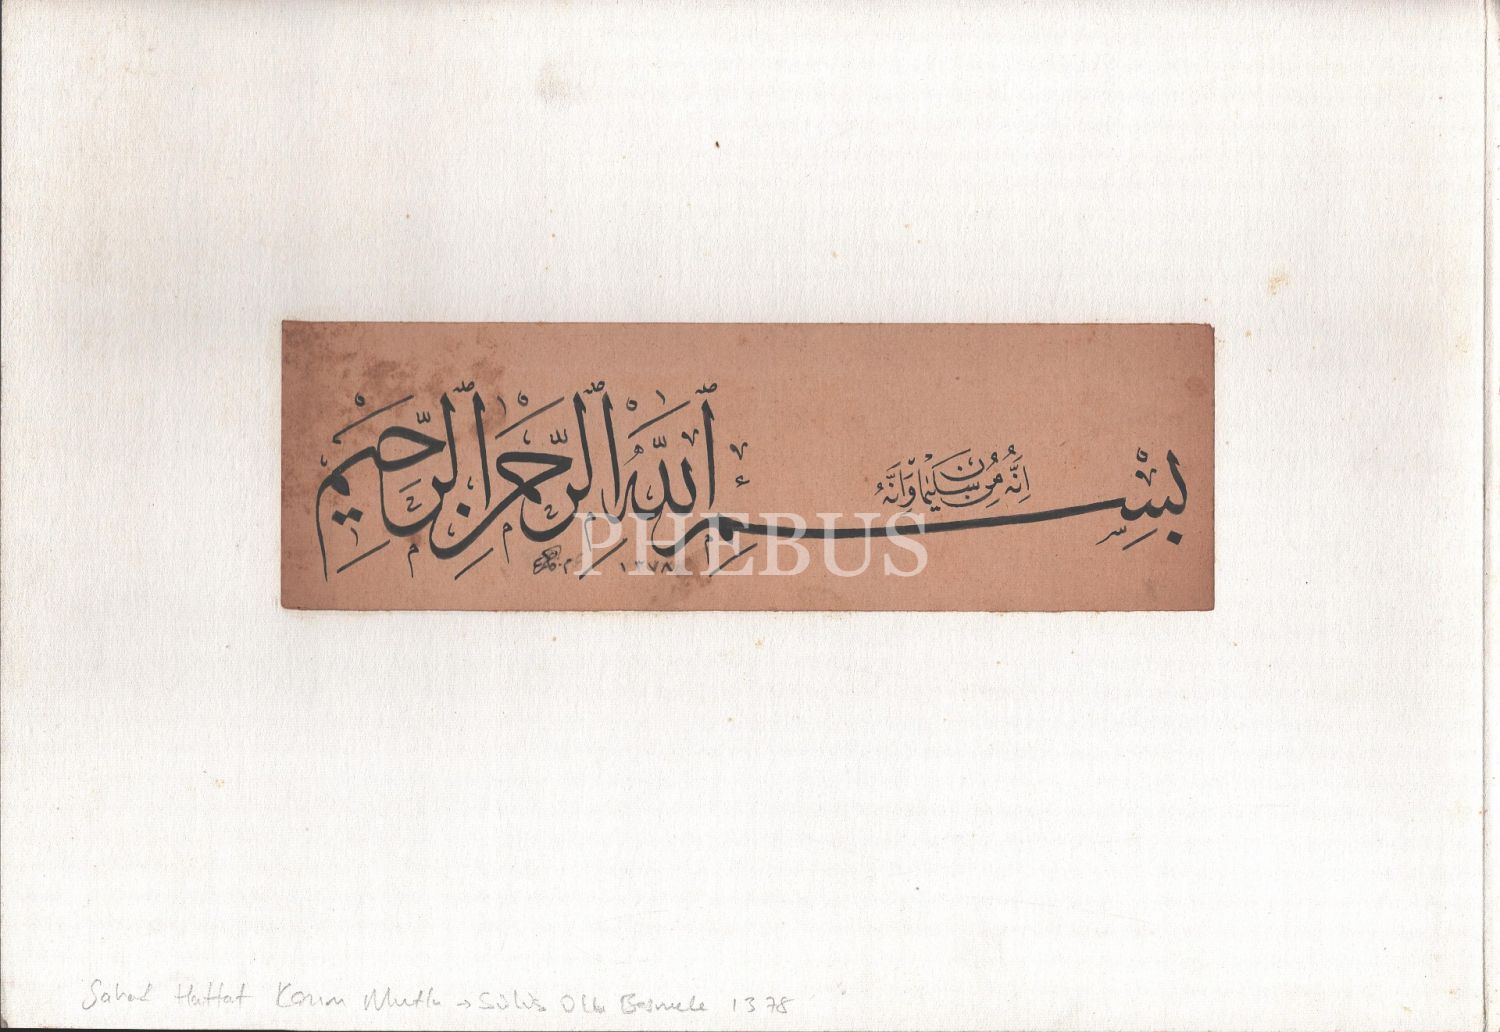 اِنَّهُ مِنْ سُلَيْمٰنَ وَاِنَّهُ
بِسْمِ اللّٰهِ الرَّحْمٰنِ الرَّحِيمِ
١٣٧٨
PHEBUS
Hattat Kerim Mutlu → Sülüs Besmele 1378